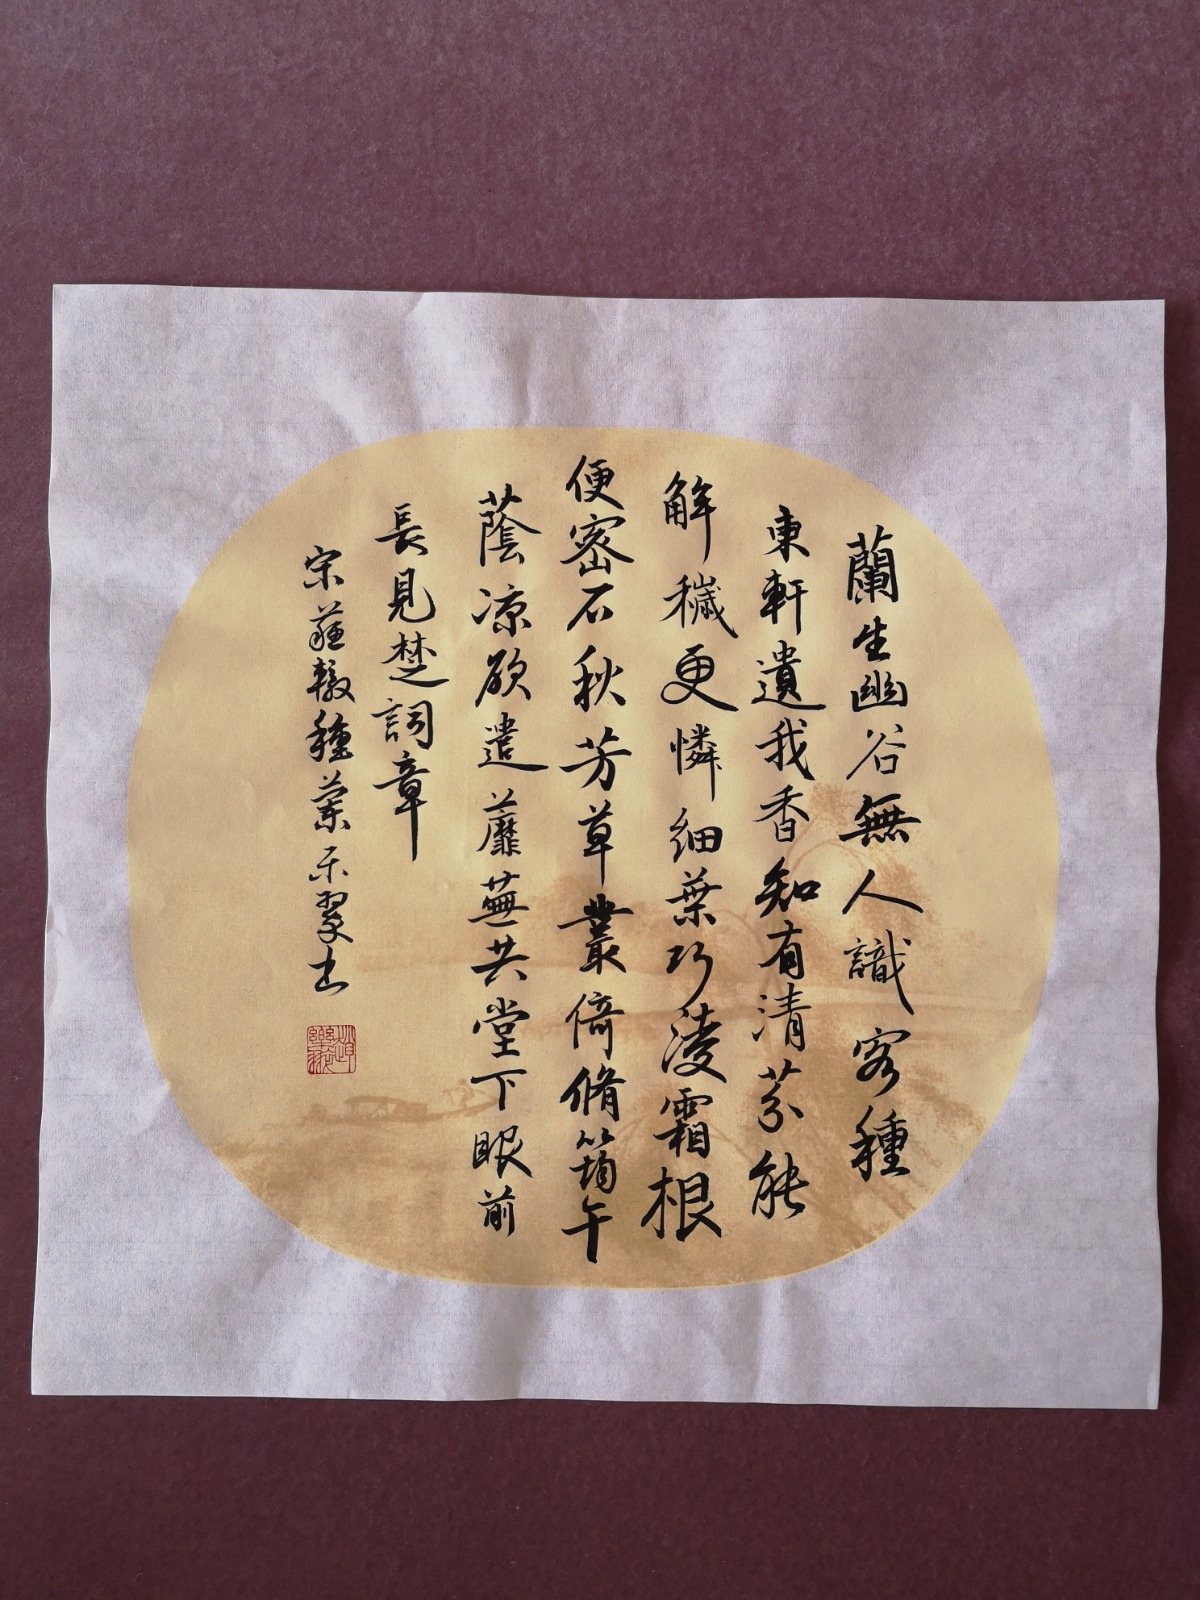 蘭生幽谷無人識客種
東軒遺我香知有清芬能
解穢更憐細葉巧淩霜根
便密石秋芳草叢倚脩筠午
蔭涼欲遣蘼蕪共堂下眼前
長見楚詞章
宋蘇轍種蘭樂翠書